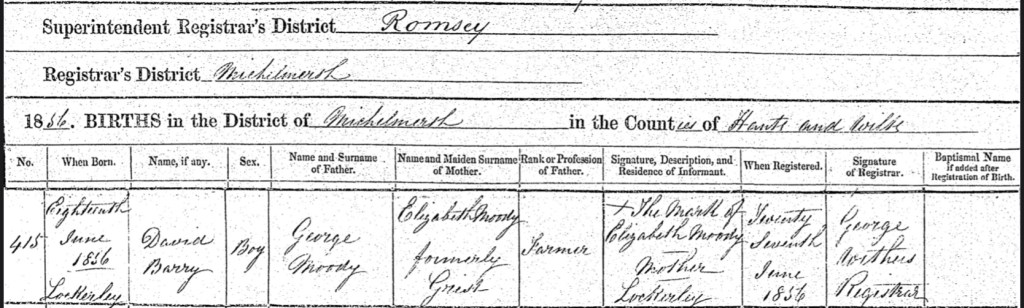 Superintendent Registrar's District Romsey
Registrar's District Michelmersh
1856. BIRTHS in the District of Michelmersh in the Counties of Hants and Wilts
No. When Born. Name, if any. Sex. Name and Surname of Father. Name and Maiden Surname of Mother. Rank or Profession of Father. Signature, Description, and Residence of Informant. When Registered. Signature of Registrar. Baptismal Name if added after Registration of Birth.
415
Eighteenth
June
1856
Lockerley
David
Barry
Boy
George
Moody
Elizabeth Moody
formerly
Farmer
X The Mark of
Elizabeth Moody
Mother
Lockerley
Twenty
Seventh
June
1856
George
Withers
Registrar